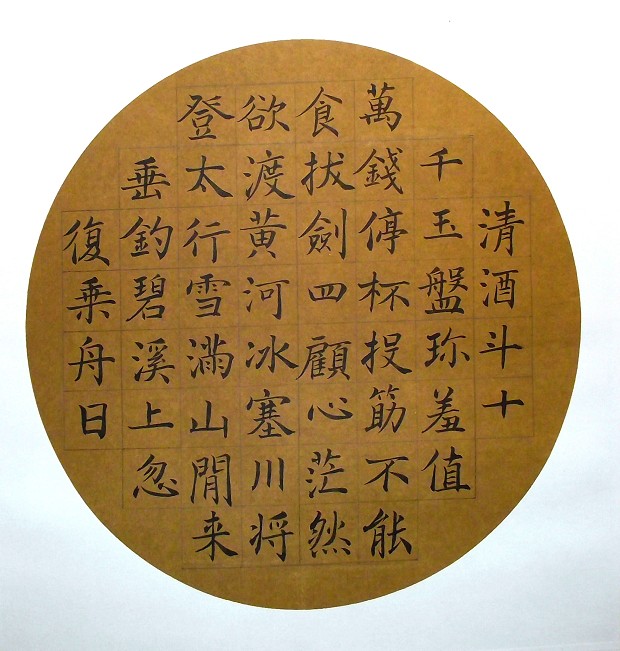 清酒斗十
千玉盤珎羞值
萬錢停杯投筯不能
食拔劍四顧心茫然
欲渡黄河冰塞川将
登太行雪滿山閒来
垂釣碧溪上忽
復乗舟日